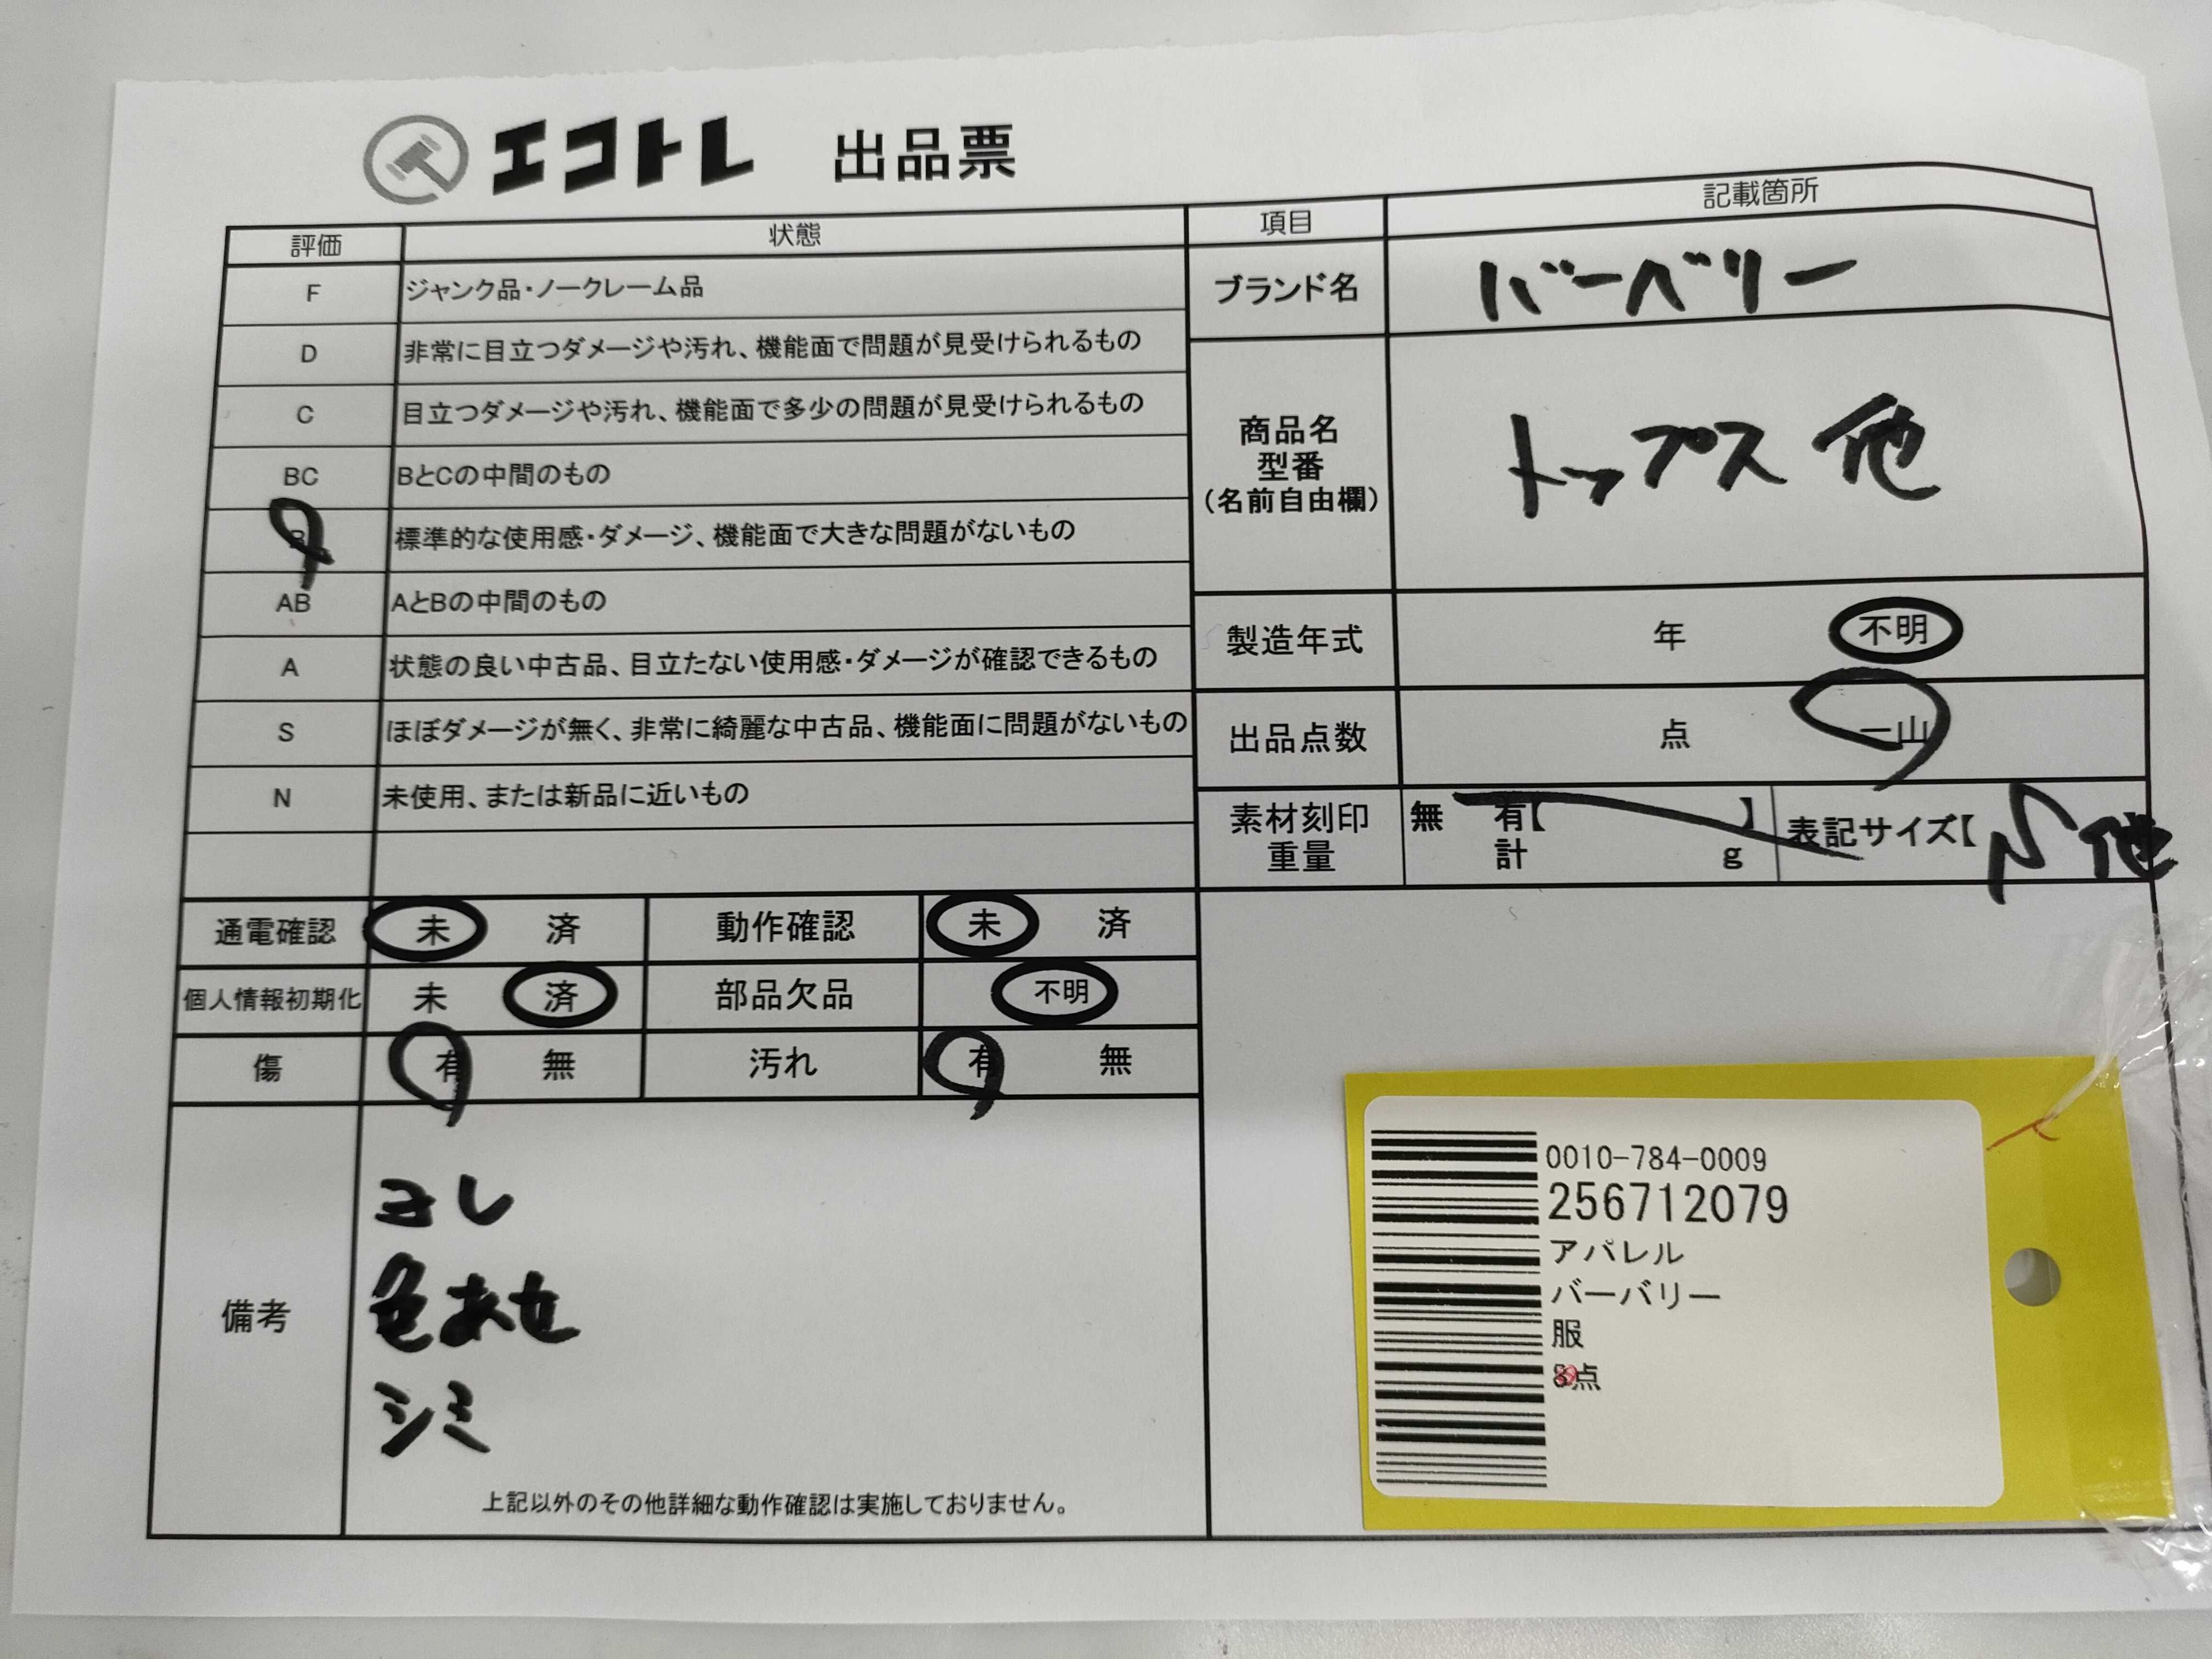 エコトレ 出品票
評価 状態
F ジャンク品・ノークレーム品
D 非常に目立つダメージや汚れ、機能面で問題が見受けられるもの
C 目立つダメージや汚れ、機能面で多少の問題が見受けられるもの
BC BとCの中間のもの
B 標準的な使用感・ダメージ、機能面で大きな問題がないもの
AB AとBの中間のもの
A 状態の良い中古品、目立たない使用感・ダメージが確認できるもの
S ほぼダメージが無く、非常に綺麗な中古品、機能面に問題がないもの
N 未使用、または新品に近いもの
項目 記載箇所
ブランド名 バーベリー
商品名
型番
（名前自由欄）
トップス 他
製造年式 年 不明
出品点数 点 一山
素材刻印
重量
無 有【 】
計 g
表記サイズ【 他
通電確認 未 済 動作確認 未 済
個人情報初期化 未 済 部品欠品 不明
傷 有 無 汚れ 有 無
備考
ヨレ
色あせ
シミ
上記以外のその他詳細な動作確認は実施しておりません。
0010-784-0009
256712079
アパレル
バーバリー
服
点